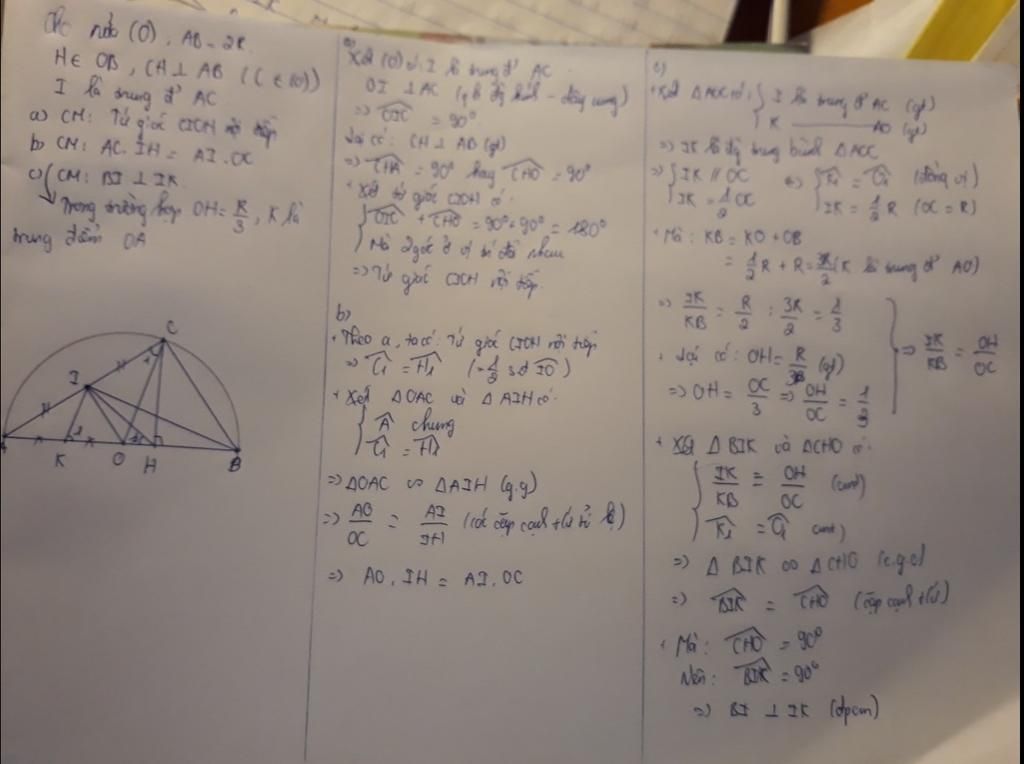 Cho nửa (O), AB = 2R.
H ∈ OB, CH ⊥ AB (C ∈ (O))
I là trung đ' AC
a) CM: Tứ giác CIOH nội tiếp
b) CM: AC. IH = AI. OC
c) CM: BI ⊥ IK
Trong trường hợp OH = R/3, K là
trung điểm OA
C
I
K
O
H
B
a)
Xét (O) có: I là trung đ' AC
OI ⊥ AC (qh đg kính - dây cung)
⇒ OIC = 90°
Lại có: CH ⊥ AB (gt)
⇒ CHA = 90° hay CHO = 90°
+ Xét tứ giác CIOH có:
OIC + CHO = 90° + 90° = 180°
Mà 2 góc ở vị trí đối nhau
⇒ Tứ giác CIOH nội tiếp
b)
+ Theo a, ta có: Tứ giác CIOH nội tiếp
⇒ C1 = H1 (= 1/2 sđ IO)
+ Xét ΔOAC và ΔAIH có:
A chung
C1 = H1
⇒ ΔOAC ∽ ΔAIH (g.g)
⇒ AO/OC = AI/IH (các cặp cạnh t/ứ tỉ lệ)
⇒ AO. IH = AI. OC
c)
+ Xét ΔAOC có: I là trung đ' AC (gt)
K ——— AO (gt)
⇒ IK là đg trung bình ΔAOC
⇒ IK // OC ⇔ K1 = O1 (đồng vị)
IK = 1/2 OC IK = 1/2 R (OC = R)
+ Mà: KB = KO + OB
= 1/2 R + R = 3R/2 (K là trung đ' AO)
⇒ IK/KB = R/2 : 3R/2 = 1/3
+ Lại có: OH = R/3 (gt)
⇒ OH = OC/3 ⇒ OH/OC = 1/3
⇒ IK/KB = OH/OC
+ Xét ΔBIK và ΔCHO có:
IK/KB = OH/OC (cmt)
K1 = O1 cmt)
⇒ Δ BIK ∽ ΔCHO (c.g.c)
⇒ BIK = CHO (cặp cạnh t/ứ)
+ Mà: CHO = 90°
Nên: BIK = 90°
⇒ BI ⊥ IK (đpcm)